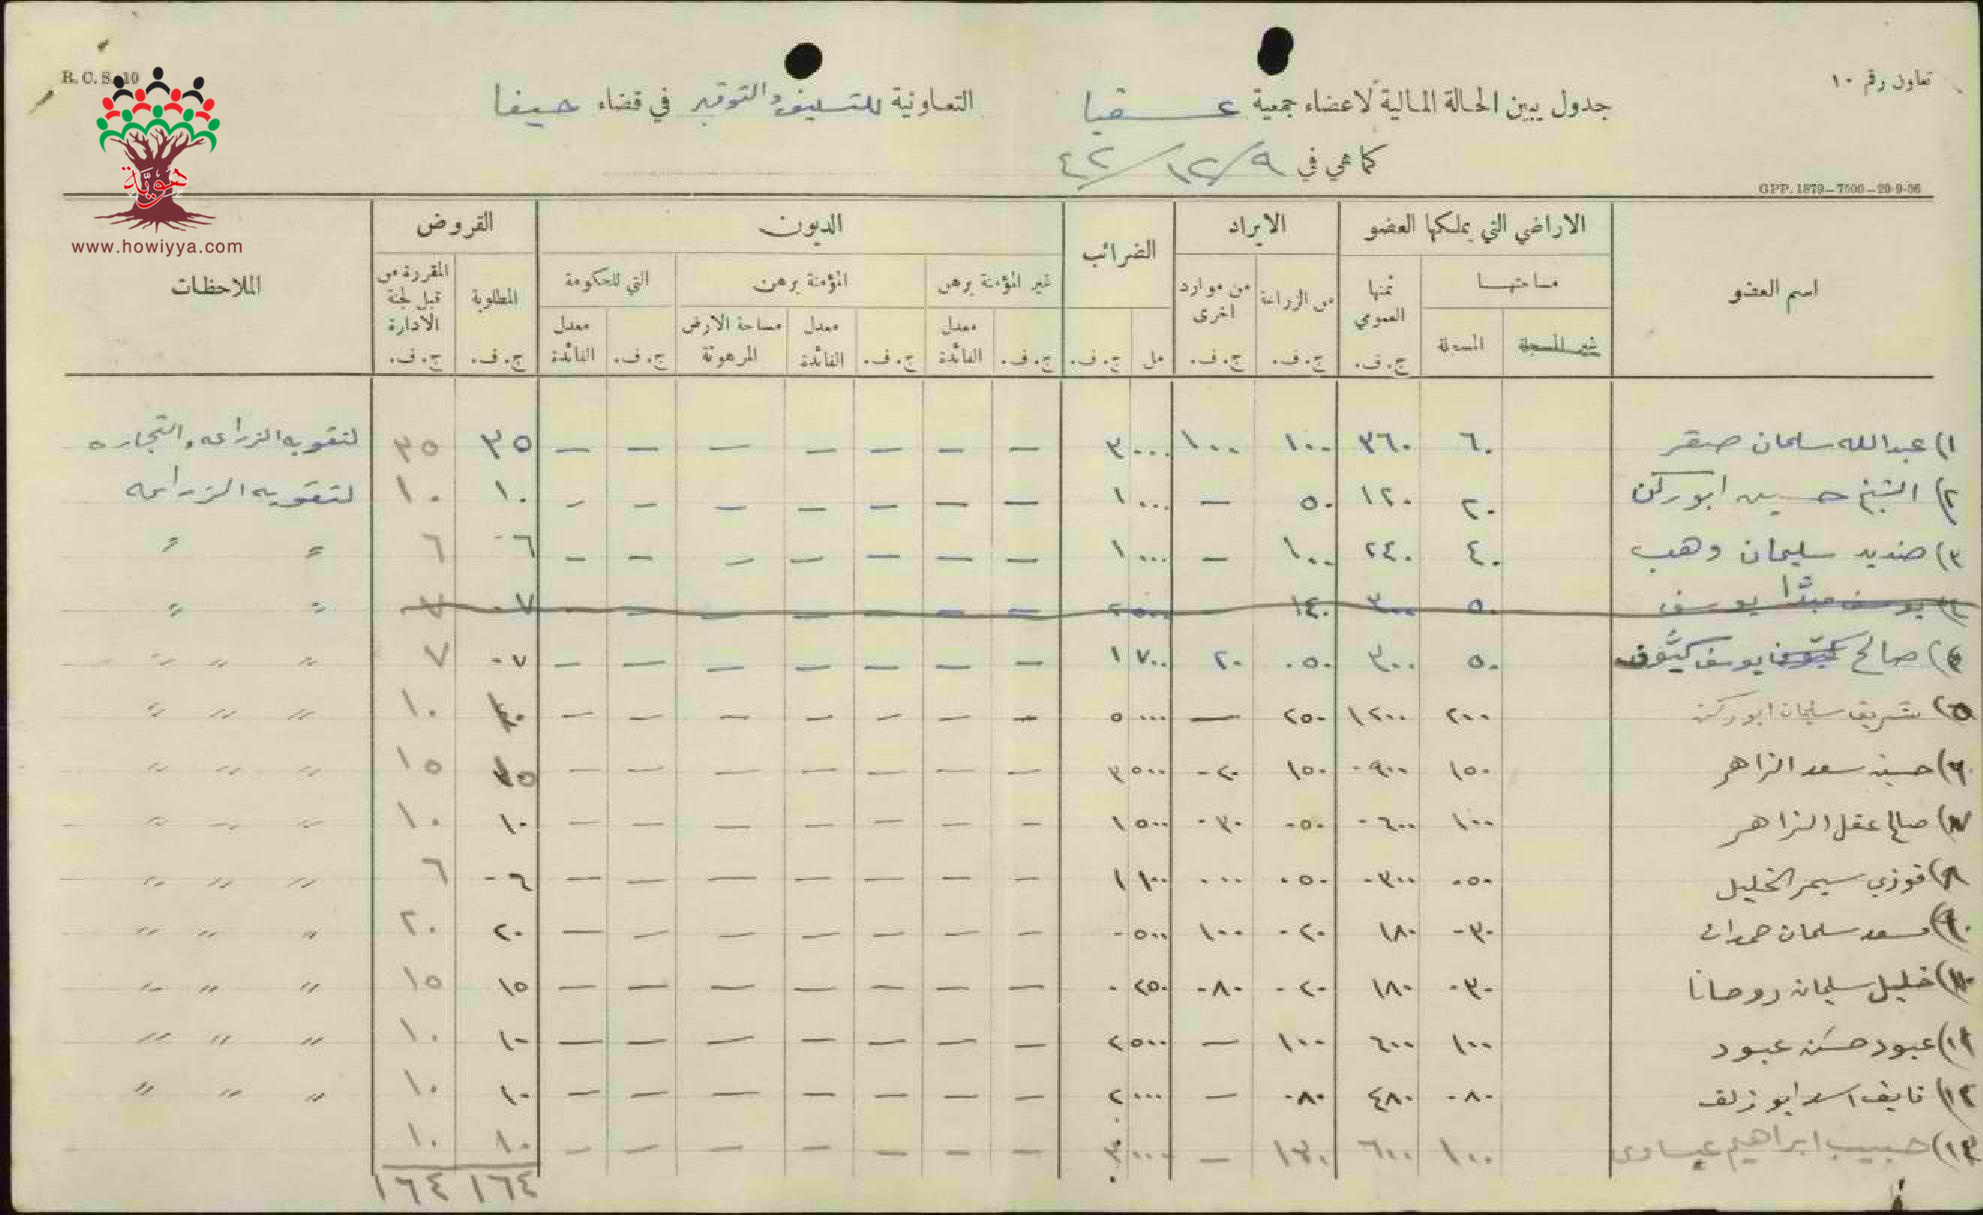 تعاون رقم ١٠
R. C. S. 10
جدول يبين الحالة المالية لاعضاء جمعية عسفيا التعاونية للتسليف والتوفير في قضاء حيفا
كما هي في ٩/١٢/٤٢
GPP. 1879—7500—29-9-36
هويّة
www.howiyya.com
اسم العضو الاراضي التي يملكها العضو الايراد الضرائب الديون القروض الملاحظات
مساحتها ثمنها العمومي من الزراعة من موارد اخرى غير المؤمنة برهن المؤمنة برهن التي للحكومة المطلوبة المقررة من قبل لجنة الادارة
غير المسجلة المسجلة ج. ف. ج. ف. ج. ف. مل ج. ف. ج. ف. معدل الفائدة ج. ف. معدل الفائدة مساحة الارض المرهونة ج. ف. معدل الفائدة ج. ف. ج. ف.
١) عبدالله سلمان صقر ٦٠ ٣٦٠ ١٠٠ ١٠٠ ٣٠٠٠ — — — — — — — ٣٥ ٣٥ لتقوية الزراعه والتجاره
٢) الشيخ حسين ابو ركن ٢٠ ١٢٠ ٥٠ — ١٠٠٠ — — — — — — — ١٠ ١٠ لتقوية الزراعه
٣) صنديد سليمان وهب ٤٠ ٢٤٠ ١٠٠ — ١٠٠٠ — — — — — — — ٦ ٦ " "
يوسف يوسف ٥٠ ٣٠٠ ١٤٠ ٢٥٠٠ — — — — — — — ٧ ٧ " "
٤) صالح يوسف كيّوف ٥٠ ٣٠٠ ٥٠ ٢٠ ١٧٠٠ — — — — — — — ٧ ٧ " " "
٥) شريف سليمان ابو ركن ٢٠٠ ١٢٠٠ ٢٥٠ — ٥٠٠٠ — — — — — — — ١٠ ١٠ " " "
٦) حسين سعد الزاهر ١٥٠ ٩٠٠ ١٥٠ ٢٠ ٣٥٠٠ — — — — — — — ١٥ ١٥ " " "
٧) صالح عقل الزاهر ١٠٠ ٦٠٠ ٥٠ ٣٠ ١٥٠٠ — — — — — — — ١٠ ١٠ " " "
٨) فوزي سيمر الخليل ٥٠ ٣٠٠ ٥٠ ١١٠٠ — — — — — — — ٦ ٦ " " "
٩) مسعد سلمان حمدان ٣٠ ١٨٠ ٢٠ ١٠٠ ٥٠٠ — — — — — — — ٢٠ ٢٠ " " "
خليل سليمان روحانا ٣٠ ١٨٠ ٢٠ ٨٠ ٢٥٠ — — — — — — — ١٥ ١٥ " " "
عبود حسن عبود ١٠٠ ٦٠٠ ١٠٠ — ٢٥٠٠ — — — — — — — ١٠ ١٠ " " "
١٢) نايف اسد ابو زلف ٨٠ ٤٨٠ ٨٠ — ٢٠٠٠ — — — — — — — ١٠ ١٠ " " "
١٣) حبيب ابراهيم عيساوي ١٠٠ ٦٠٠ ١٣٠ — ٣٠٠٠ — — — — — — — ١٠ ١٠
١٦٤ ١٦٤